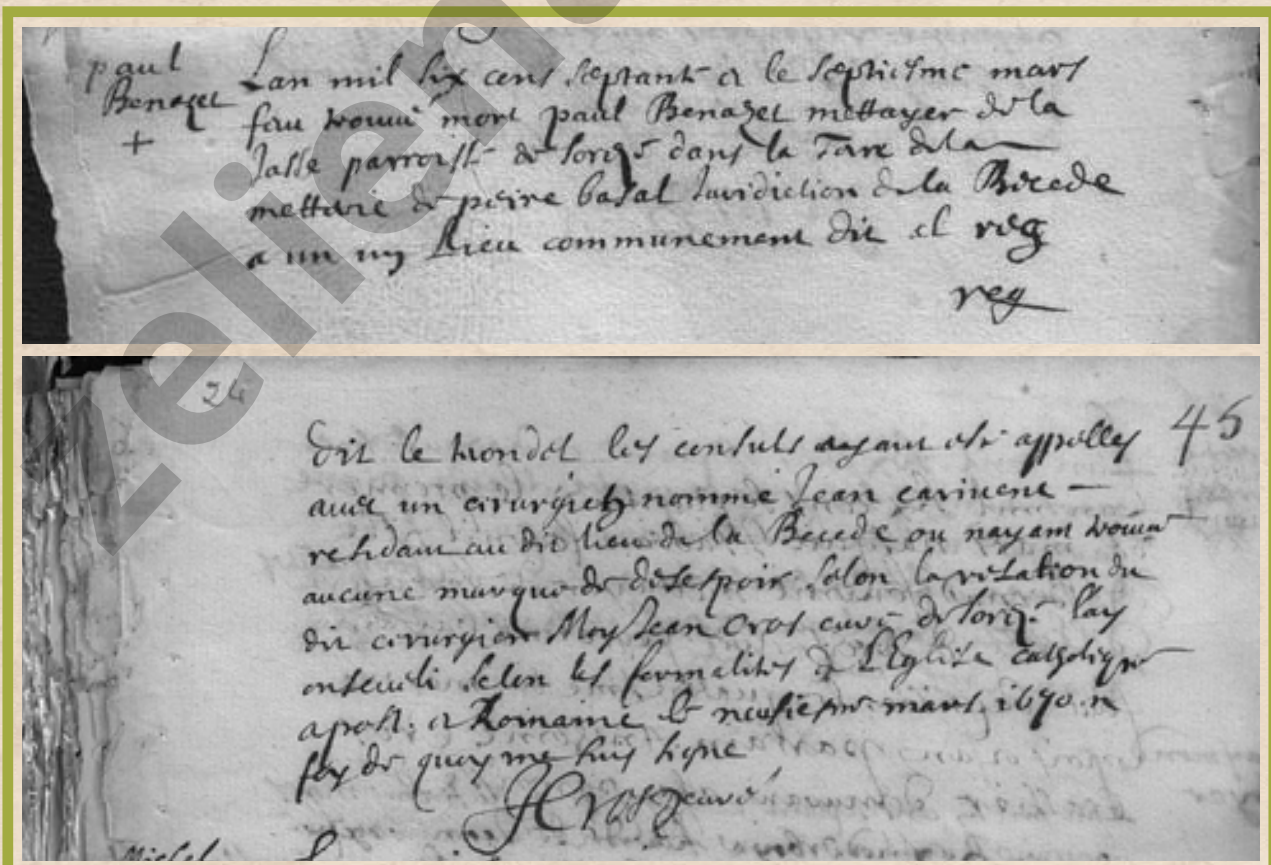 paul
Benazet
+
Lan mil six cens septante et le septiesme mars
feu trouvé mort paul Benazet mettayer de la
Jasse parroisse de soreze dans la Terre de la
metterie de peire basal Juridiction de la Becede
a un Lieu communement dit al reg
reg
24
45
dit le trondet les consuls ayant esté appelles
avec un cirurgien nomme Jean
residant au dit lieu de la Becede ou nayant trouvé
aucune marque de desespoir selon la relation du
dit cirurgien Moy Jean Cros curé de sorez. lay
enseveli selon les formalites de L'Eglise catholique
apost. et Romaine le neufiesme mars 1670 n
foy de quoy me suis signe
JCros curé
Michel
zeliem